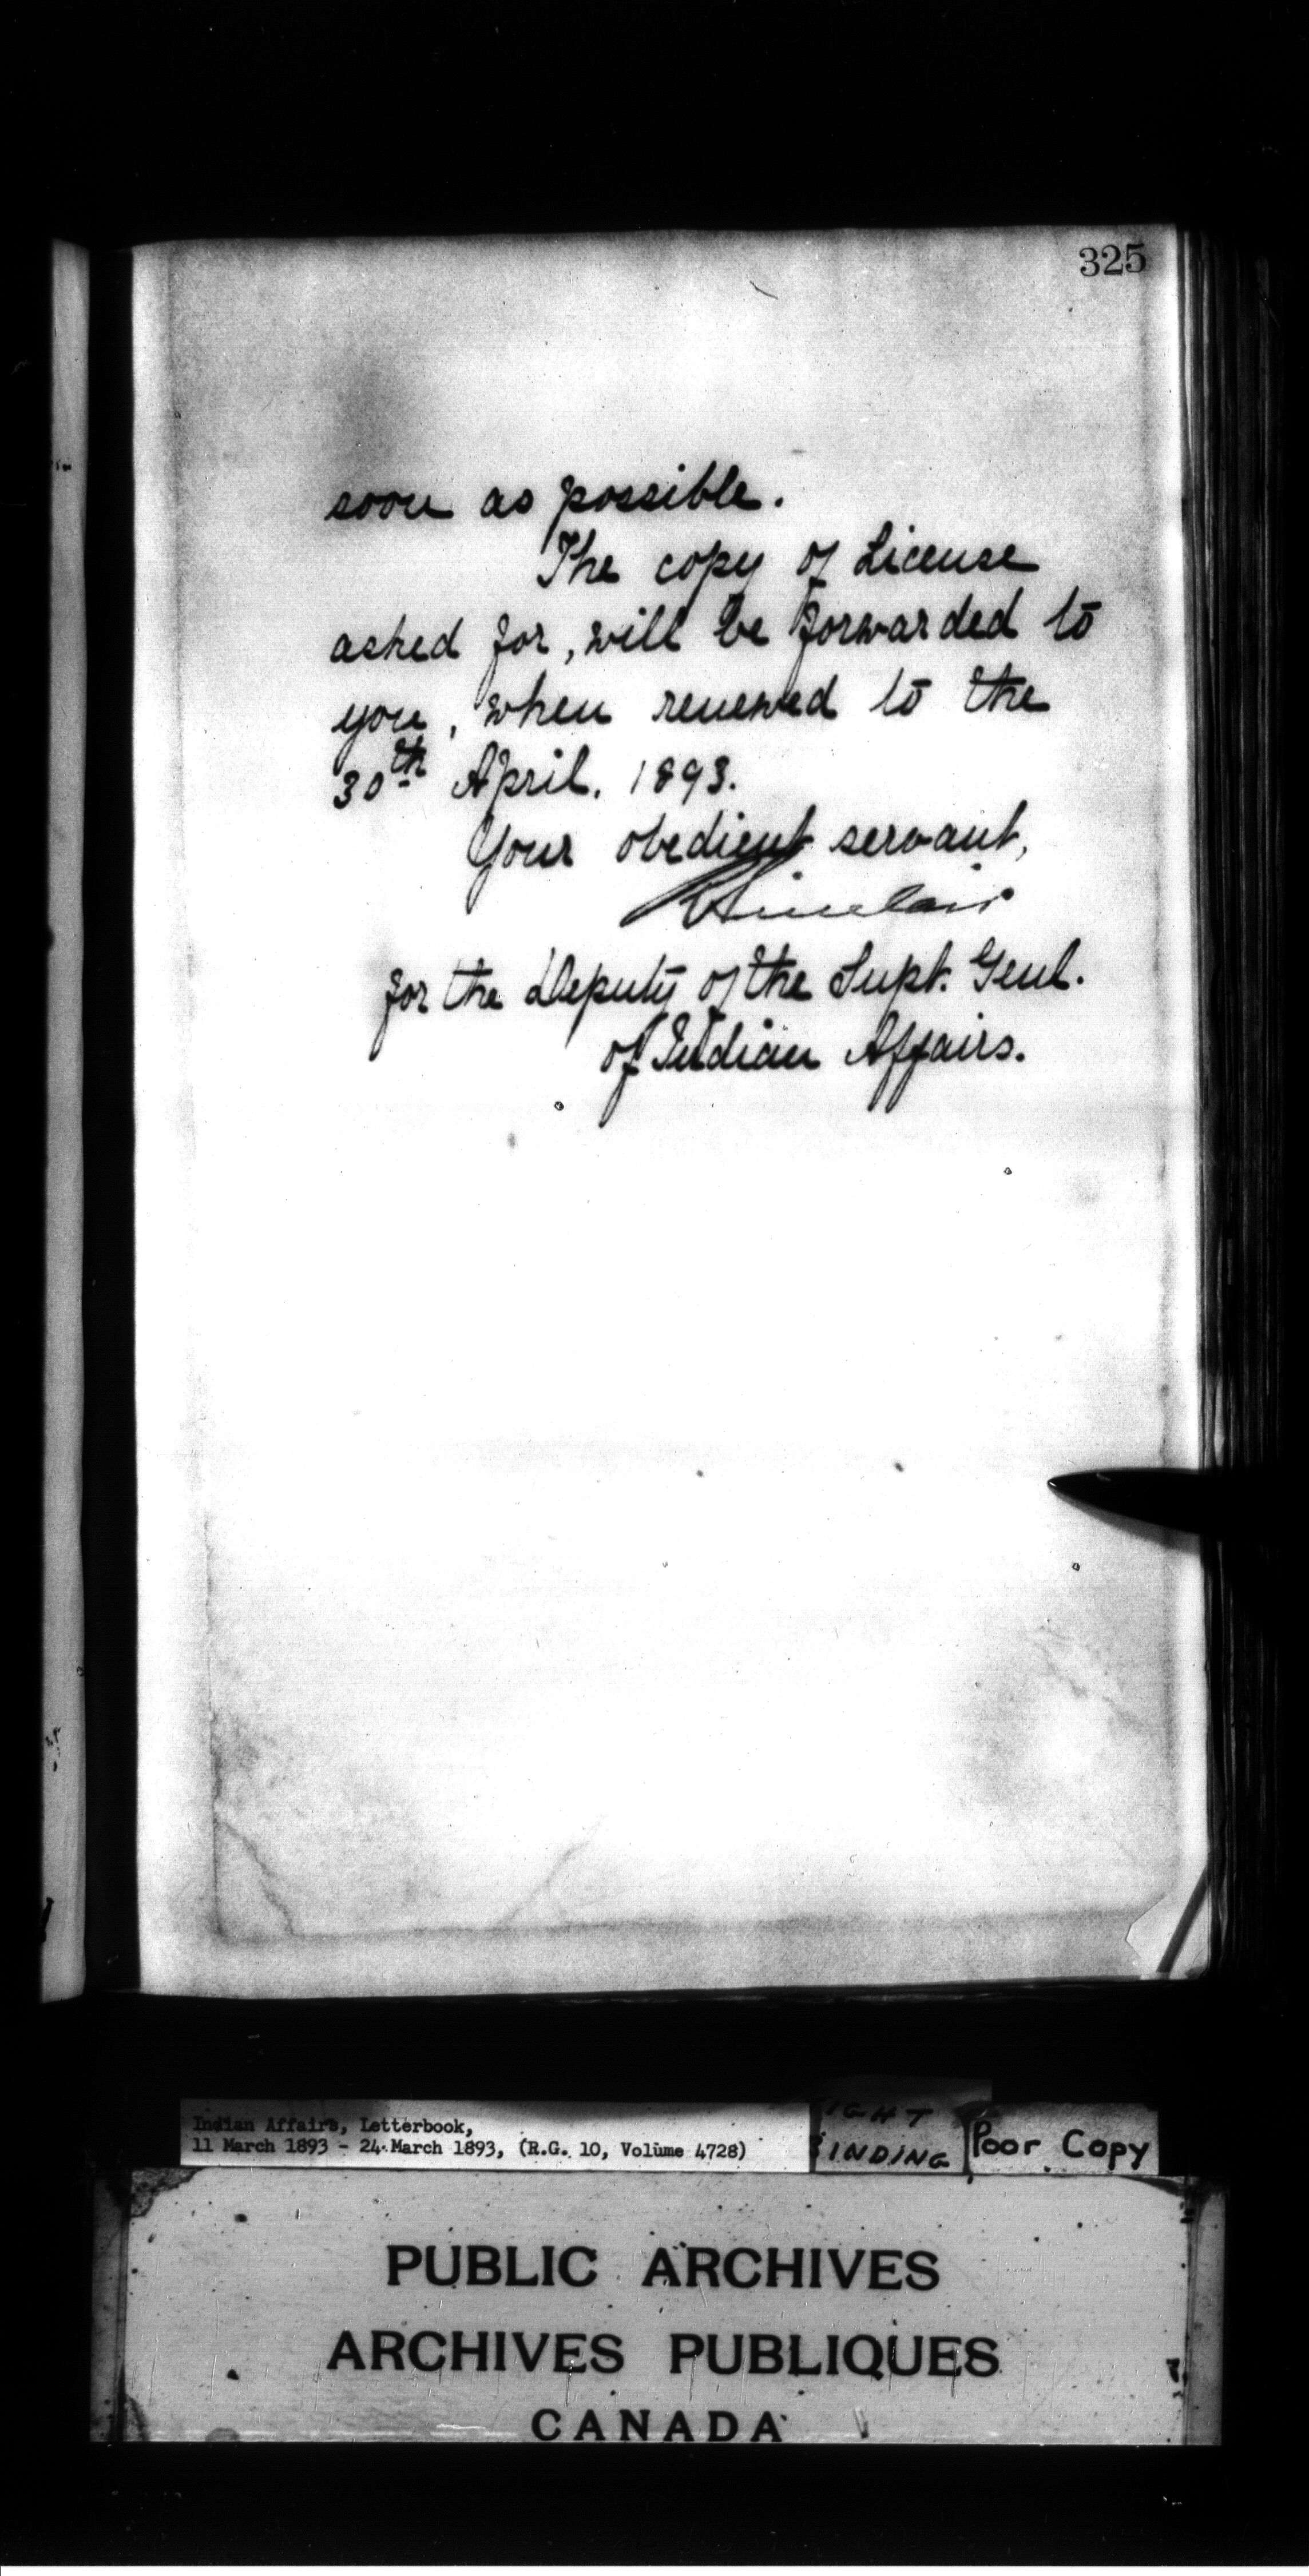 325
soon as possible.
The copy of License
asked for, will be forwarded to
you, when renewed to the
30th April, 1893.
Your obedient servant,
Sinclair
for the Deputy of the Supt. Genl.
of Indian Affairs.
Indian Affairs, Letterbook,
11 March 1893 - 24 March 1893, (R.G. 10, Volume 4728)
IGHT
BINDING
Poor Copy
PUBLIC ARCHIVES
ARCHIVES PUBLIQUES
CANADA